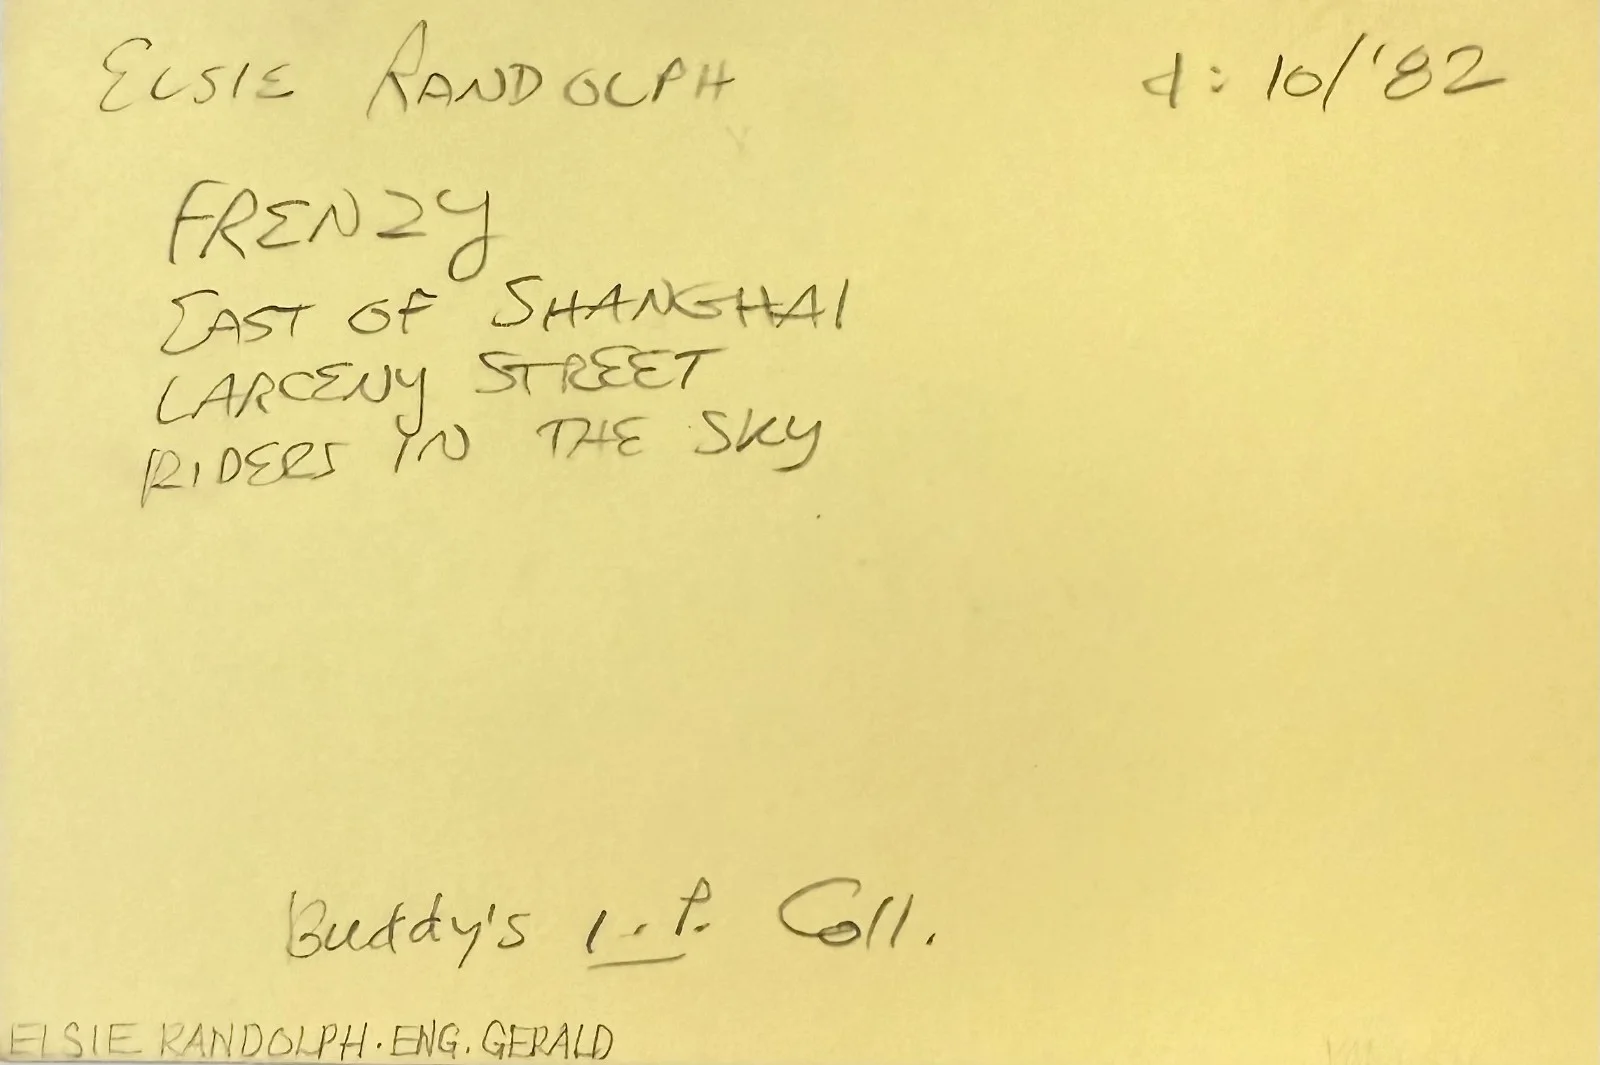 ELSIE RANDOLPH d: 10/'82
FRENZY
EAST OF SHANGHAI
LARCENY STREET
RIDERS IN THE SKY
Buddy's I.P. Coll.
ELSIE RANDOLPH. ENG. GERALD